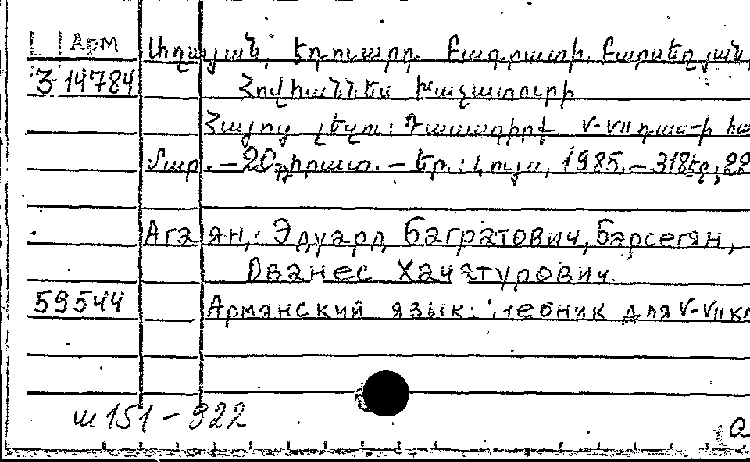 Арм Աղայան, Էդուարդ Բագրատի. Բարսեղյան,
3 14784 Հովհաննես Խաչատուրի
Հայոց լեզու: Դասագիրք V-VII դաս-ի հա
մար. – 20 – Եր.: Լույս, 1985. – 318 էջ, 22
Агаян, Эдуард Багратович, Барсегян,
Ованес Хачатурович.
59544 Армянский язык: Учебник для V-VII кл
ш151-922